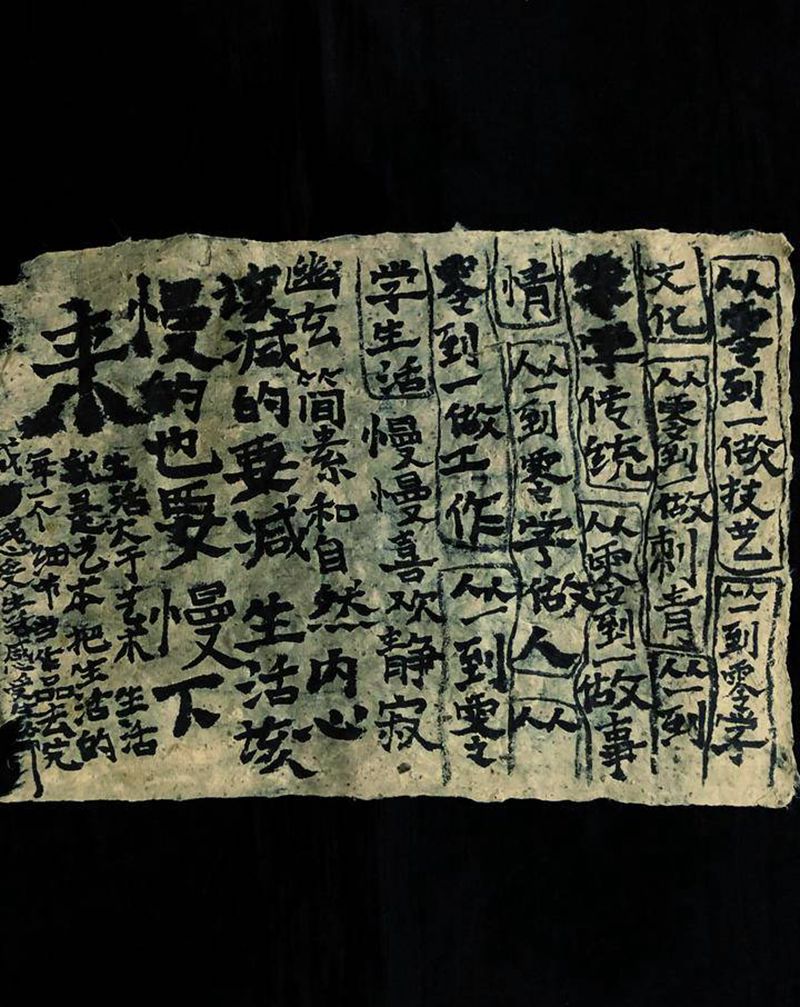 从零到一做技艺 从一到零学
文化 从零到一做刺青 从一到
零学传统 从零到一做事
情 从一到零学做人 从
零到一做工作 从一到零
学生活 慢慢喜欢静寂
幽玄 简素和自然内心
该减的要减 生活该
慢的也要慢下
来
生活大于艺术 生活
就是艺术 把生活的
每一个细节当作品去完
成 感受生活感受